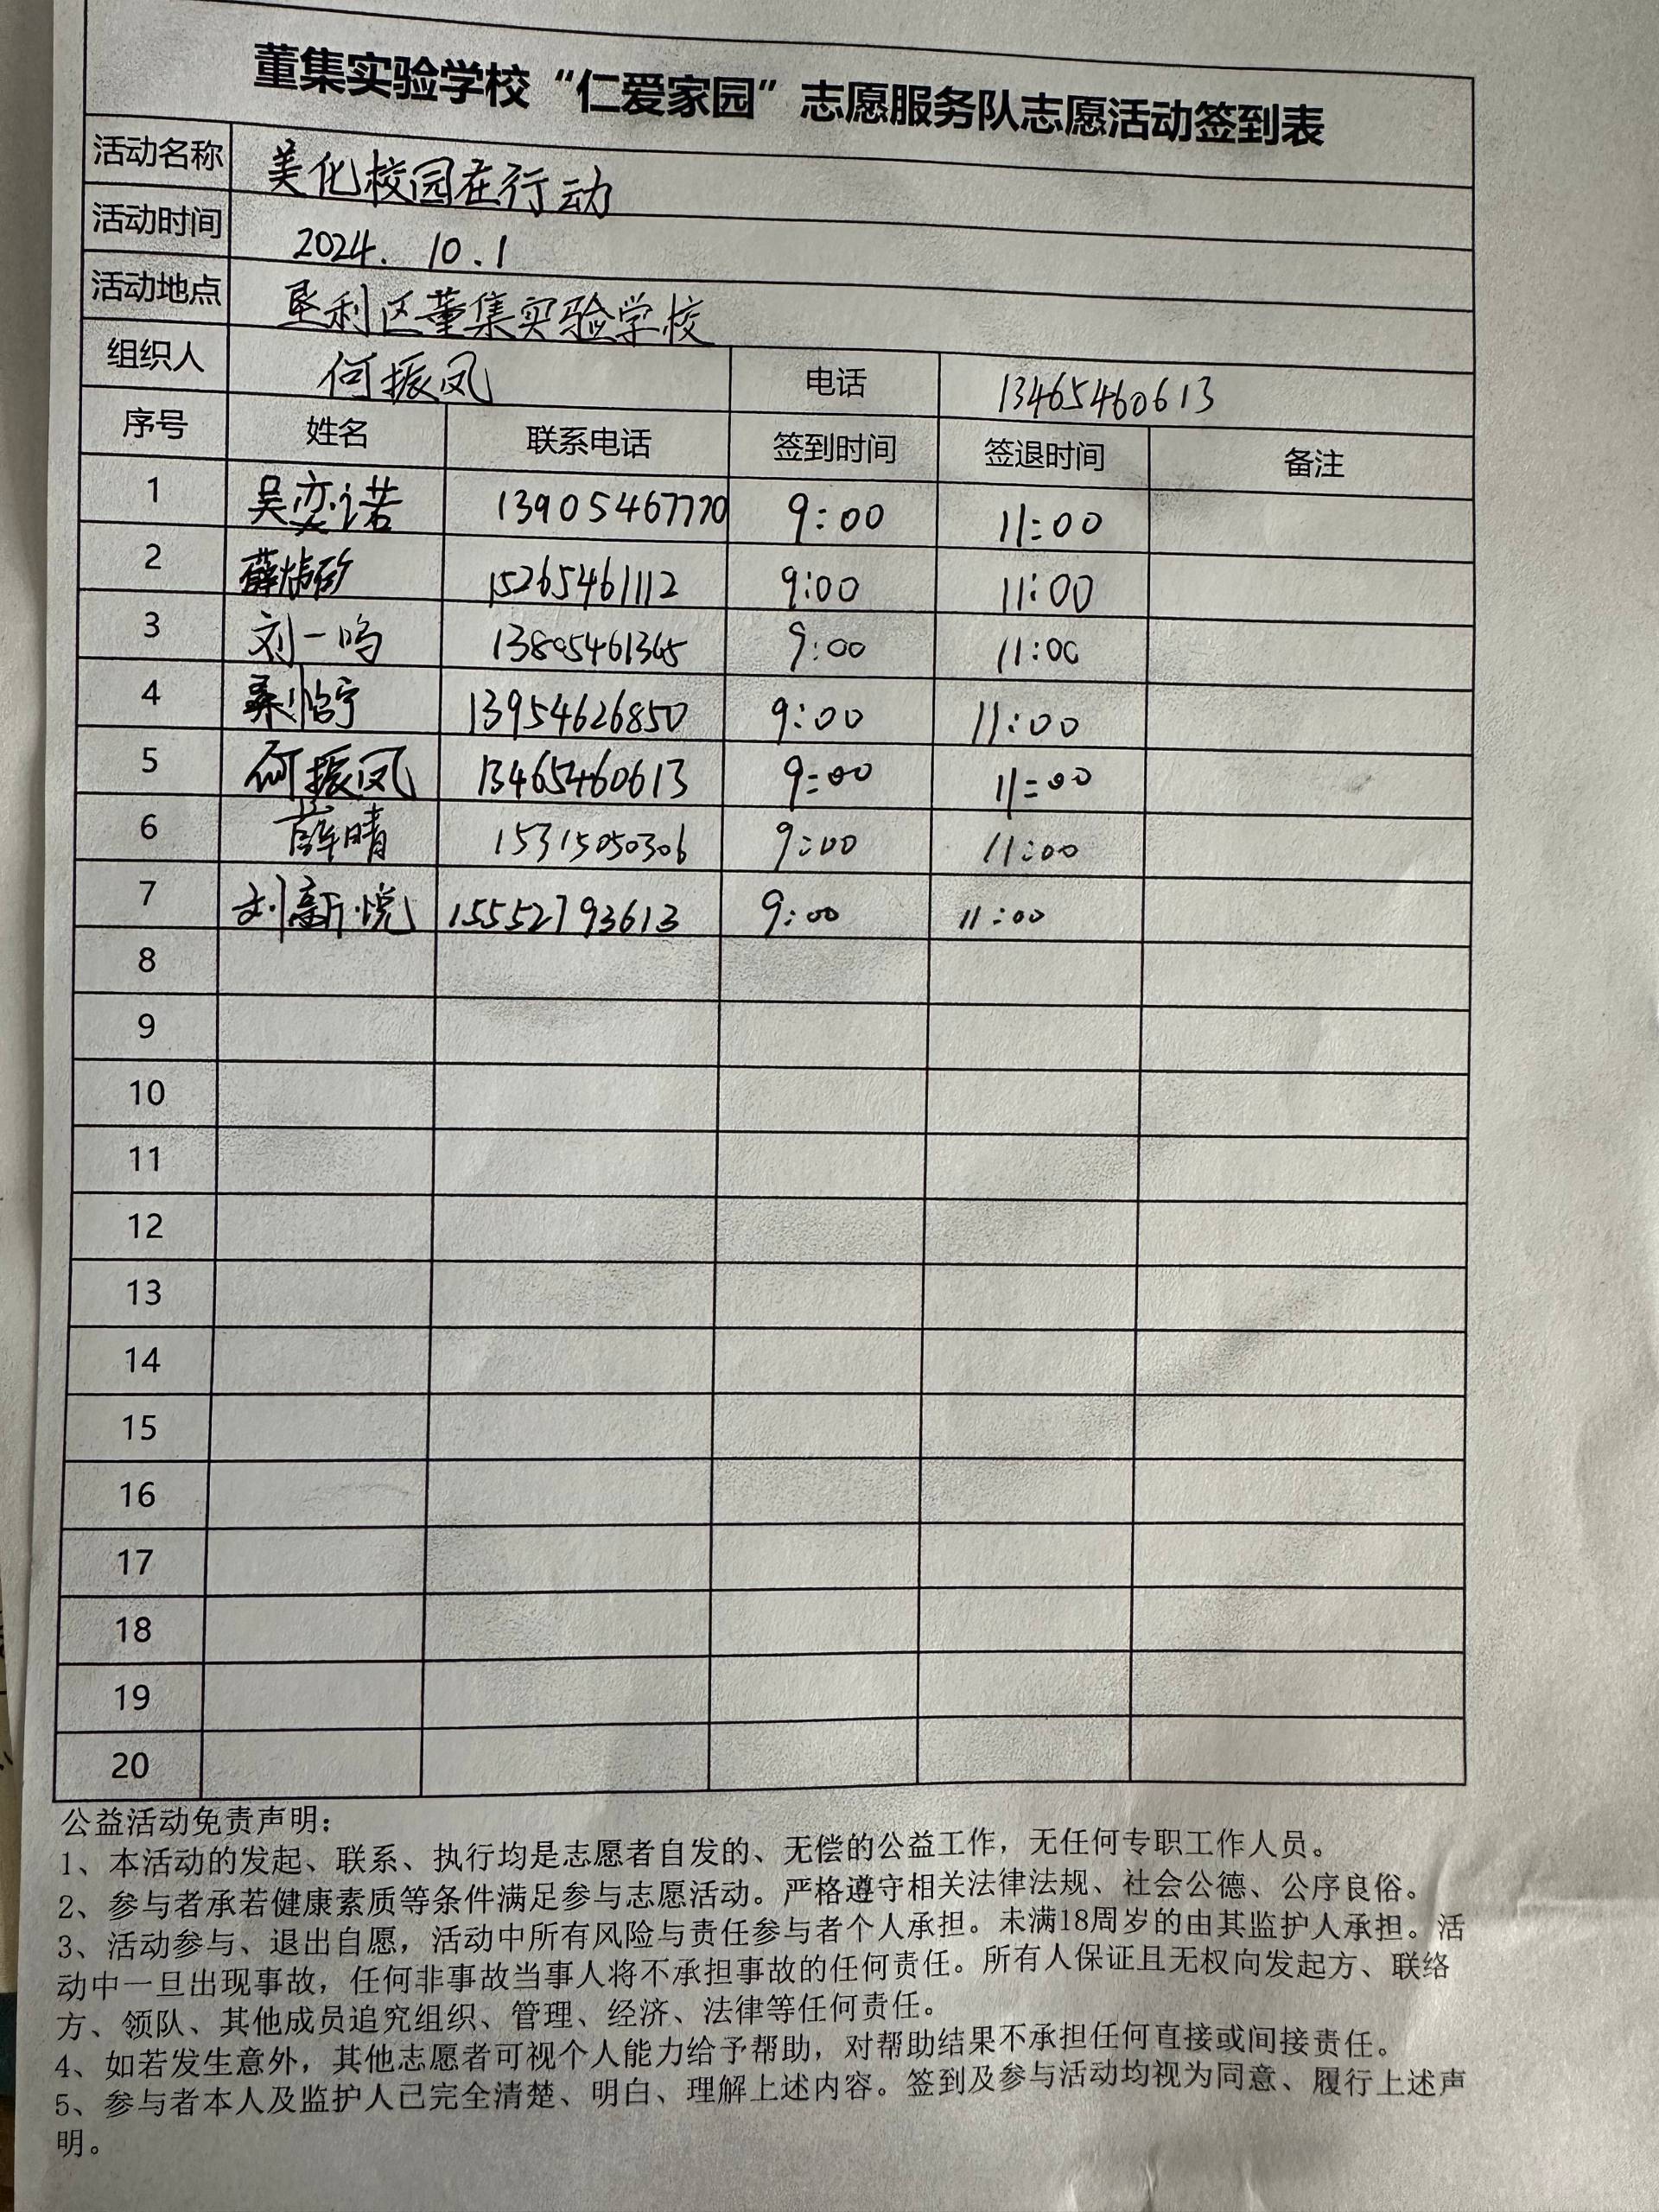 董集实验学校“仁爱家园”志愿服务队志愿活动签到表
活动名称 美化校园在行动
活动时间 2024. 10.1
活动地点 垦利区董集实验学校
组织人 何振凤 电话 13465460613
序号 姓名 联系电话 签到时间 签退时间 备注
1 吴奕诺 13905467770 9:00 11:00
2 薛 15265461112 9:00 11:00
3 刘一鸣 9:00 11:00
4 13954626850 9:00 11:00
5 何振凤 13465460613 9:00 11:00
6 薛晴 15315050306 9:00 11:00
7 刘新悦 15552793613 9:00 11:00
8
9
10
11
12
13
14
15
16
17
18
19
20
公益活动免责声明：
1、本活动的发起、联系、执行均是志愿者自发的、无偿的公益工作，无任何专职工作人员。
2、参与者承若健康素质等条件满足参与志愿活动。严格遵守相关法律法规、社会公德、公序良俗。
3、活动参与、退出自愿，活动中所有风险与责任参与者个人承担。未满18周岁的由其监护人承担。活
动中一旦出现事故，任何非事故当事人将不承担事故的任何责任。所有人保证且无权向发起方、联络
方、领队、其他成员追究组织、管理、经济、法律等任何责任。
4、如若发生意外，其他志愿者可视个人能力给予帮助，对帮助结果不承担任何直接或间接责任。
5、参与者本人及监护人已完全清楚、明白、理解上述内容。签到及参与活动均视为同意、履行上述声
明。